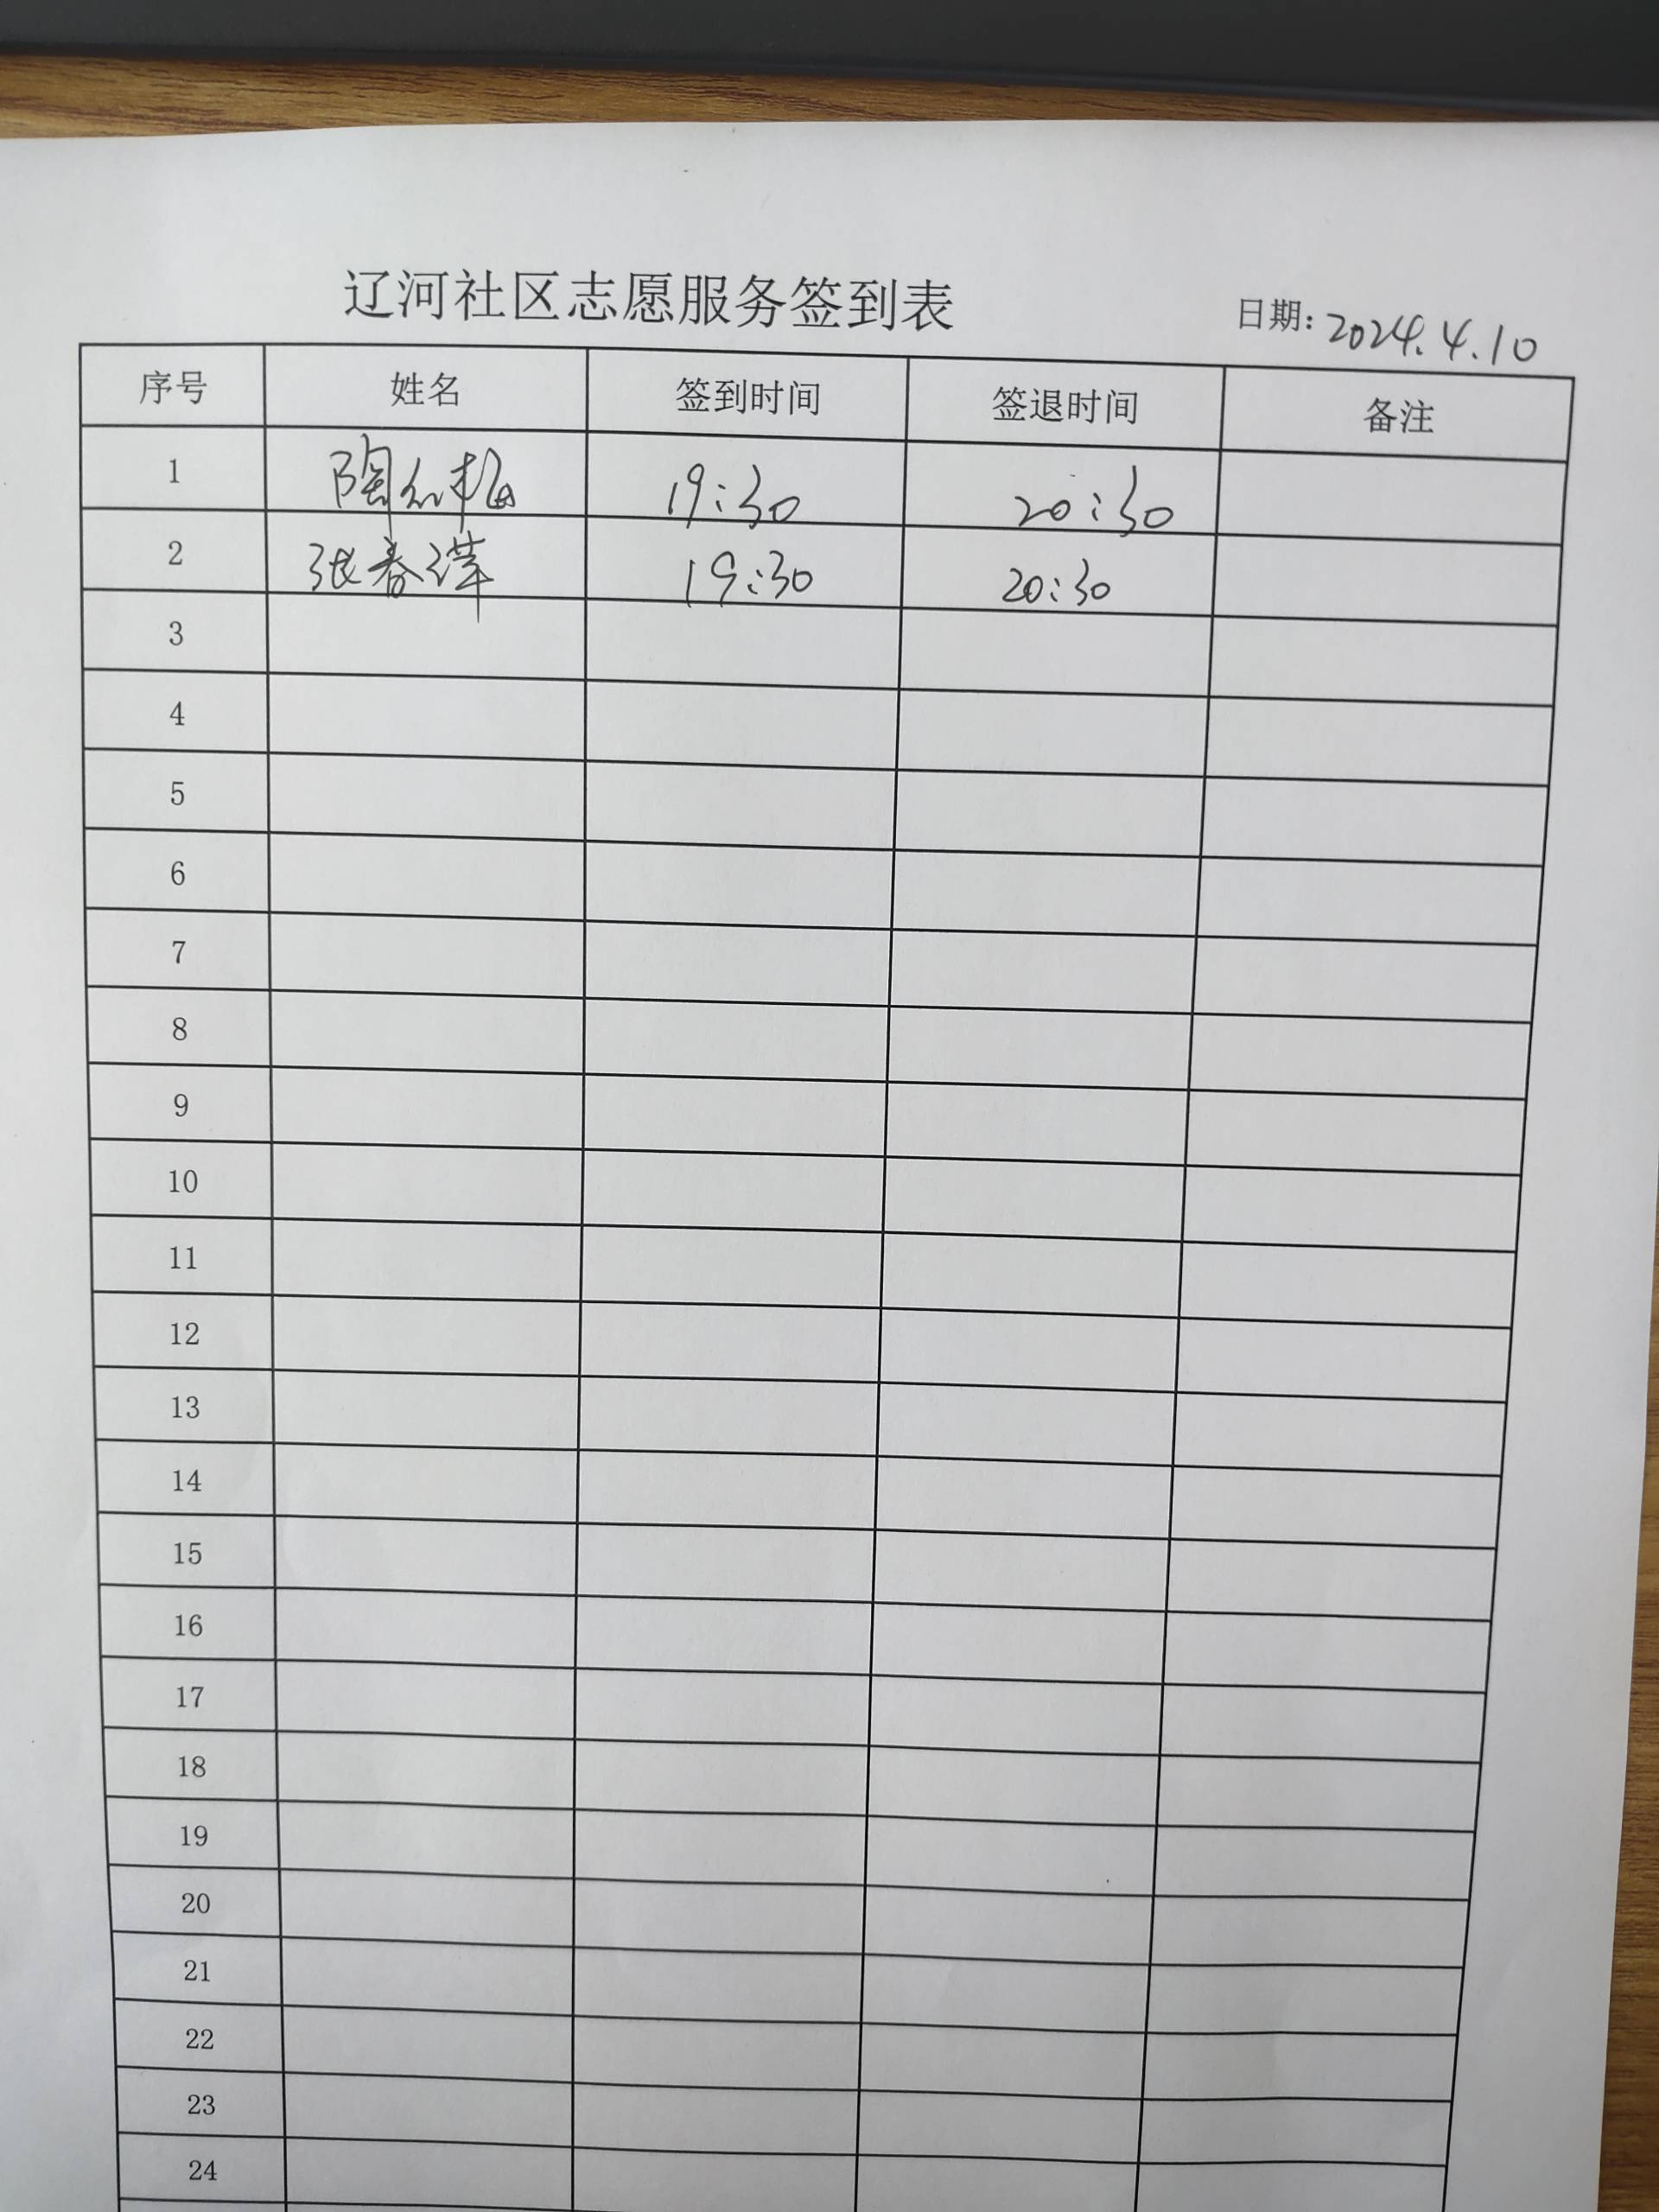 辽河社区志愿服务签到表
日期: 2024.4.10
序号 姓名 签到时间 签退时间 备注
1 陶 梅 19:30 20:30
2 张春萍 19:30 20:30
3
4
5
6
7
8
9
10
11
12
13
14
15
16
17
18
19
20
21
22
23
24